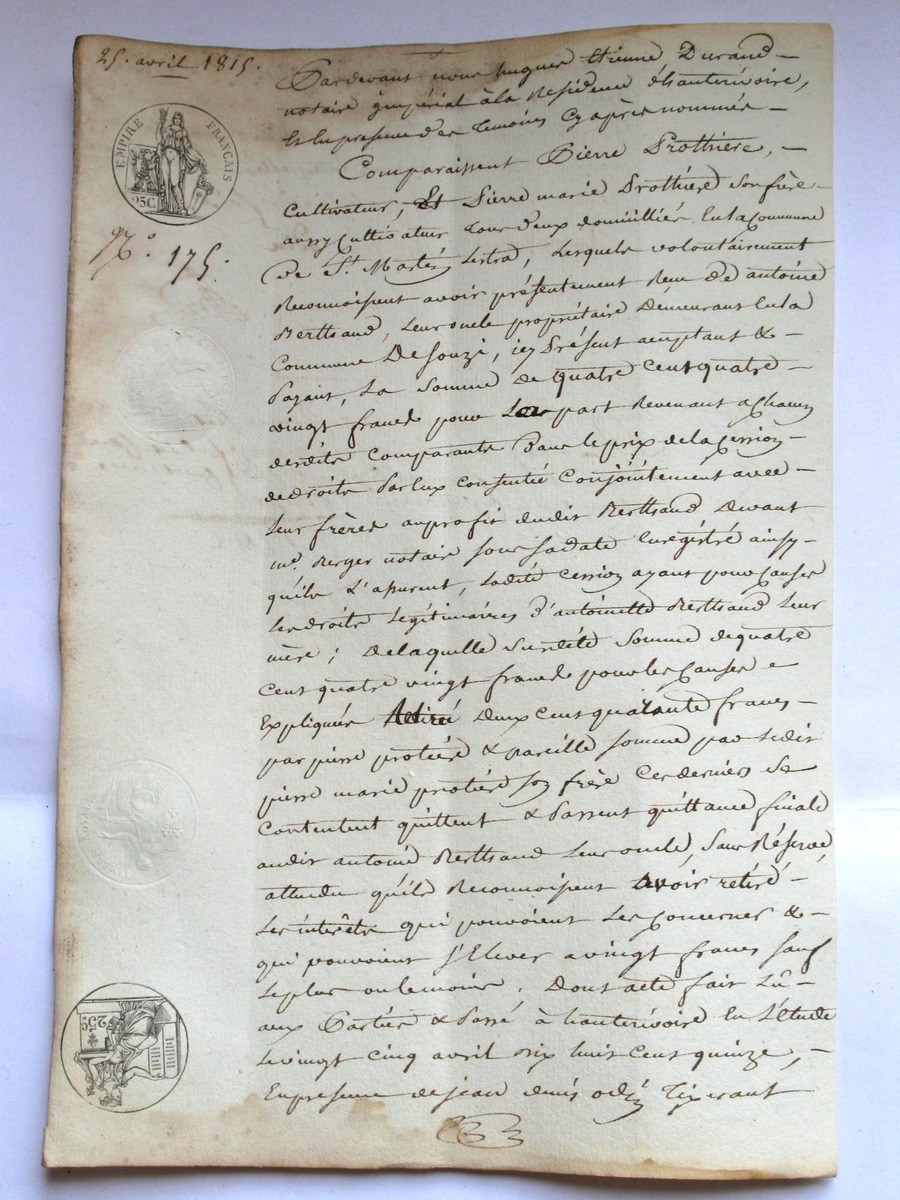 25. avril 1815.
EMPIRE FRANÇAIS
25C
N.° 175.
25C
Pardevant nous hugues Etienne Durand
notaire jmpérial à la Résidence d'hauterivoire,
Et En presence des Temoins Cy après nommés
Comparaissent Pierre Prothière,
Cultivateur, Et Pierre marie Prothière Son frère
aussy Cultivateur Tous deux domiciliés En la Commune
de St. Martin Lestra, Lesquels volontairement
Reconnoissent avoir présentement Reçu de antoine
Berthaud, Leur oncle propriétaire Demeurant En la
Commune De Souzi, icy Présent acceptant &
Payant, La Somme de quatre Cent quatre
vingt francs pour La part Revenant a Chacun
desdits Comparants Dans le prix de la Cession
de droits Par Eux Consentée Conjointement avec
Leur frères au profit dudit Berthaud Devant
me. Berger notaire Sous Sa date Enregistré ainsy
qu'ils L'assurent, Ladite Cession ayant pour Causes
Les droits Légitimaires d'antoinette Berthaud Leur
mère; De laquelle Susdite Somme de quatre
Cent quatre vingt francs pour les Causes
Expliquées Retiré Deux Cent quarante francs
par pierre protière & pareille Somme par Ledit
pierre marie protière Son frère Ces derniers Se
Contentent quittent & Passent quittance finale
audit antoine Berthaud Leur oncle, Sans Réserve,
attendu qu'ils Reconnoissent avoir retiré
Les intérêts qui pouvoient Les Concerner &
qui pouvoient S'Elever a vingt francs Sauf
Le plus ou Le moins. Dont acte fait Lû
aux Parties & Passé à hauterivoire En L'étude
Le vingt Cinq avril dix huit Cent quinze,
En presence de jean denis odin Tixerant